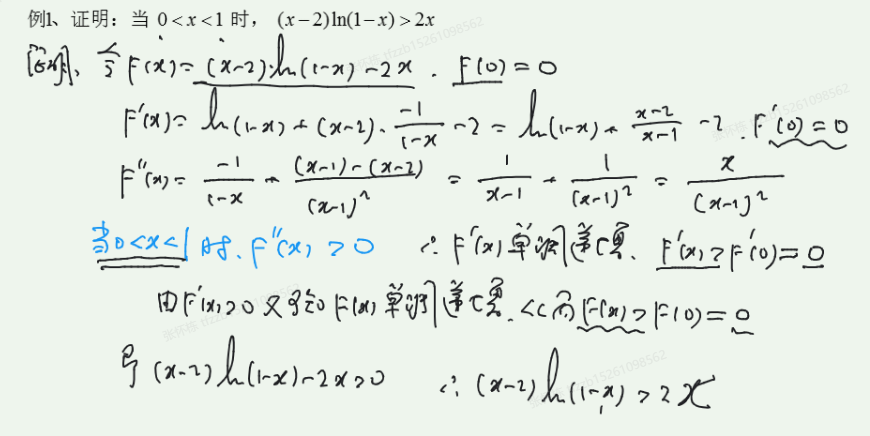 例1、证明：当 0<x<1 时， (x−2)ln(1−x)>2x
证明、令 F(x)=(x-2)·ln(1-x)-2x . F(0)=0
F'(x)= ln(1-x)+(x-2)·\frac{-1}{1-x}-2 = ln(1-x)+\frac{x-2}{x-1}-2 . F'(0)=0
F''(x)= \frac{-1}{1-x}+\frac{(x-1)-(x-2)}{(x-1)^2} = \frac{1}{x-1}+\frac{1}{(x-1)^2} = \frac{x}{(x-1)^2}
当0<x<1时、F''(x)>0 ∴ F'(x)单调递增、F'(x)>F'(0)=0
由F'(x)>0 又可知F(x)单调递增. 从而F(x)>F(0)=0
即 (x-2)ln(1-x)-2x>0 ∴ (x-2)ln(1-x)>2x